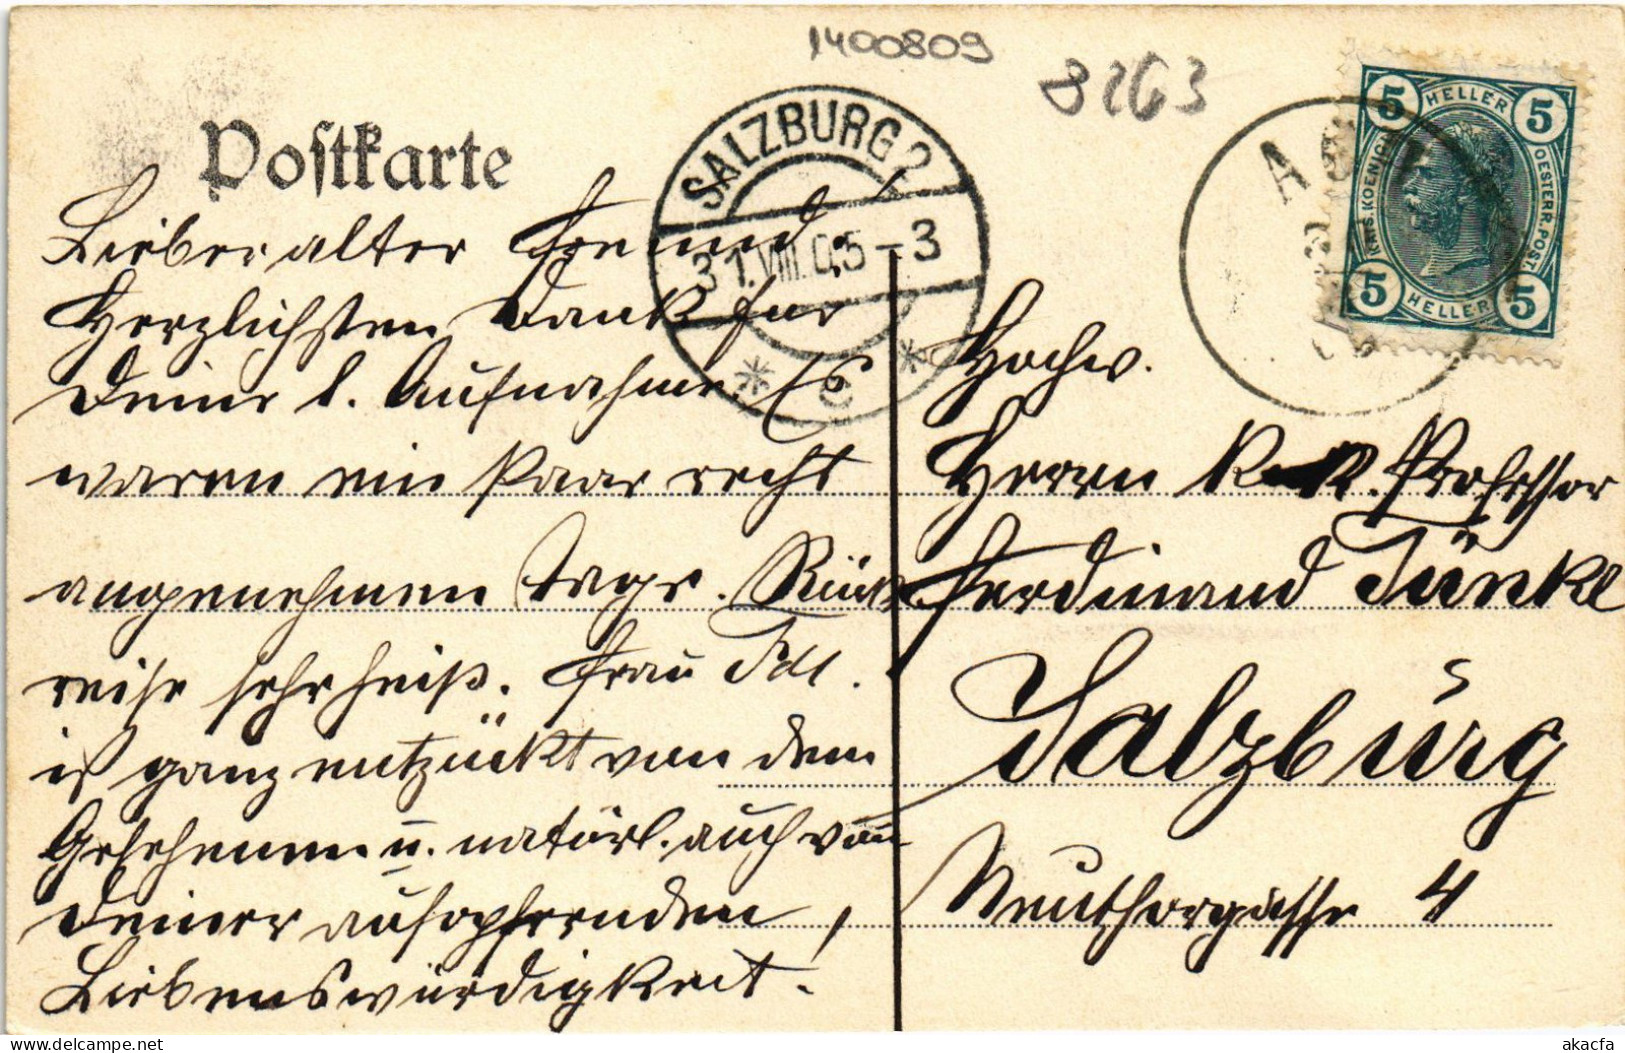 1400809
8263
Postkarte
SALZBURG 2
31.VIII.05-3
* c *
5 HELLER 5
KAIS. KOENIGL.
OESTERR. POST.
5 HELLER 5
Lieber alter Freund,
Herzlichsten Dank für
Deine l. Aufnahme. Es
waren ein Paar recht
angenehmen Tage. Rück
reise sehr heiß. Frau
ist ganz entzückt von dem
Gesehenen u. natürl. auch von
Deiner aufopfernden
Liebenswürdigkeit.
Hochw.
Herrn K. K. Professor
Ferdinand Künkel
Salzburg
Neuthorgasse 4
akacfa